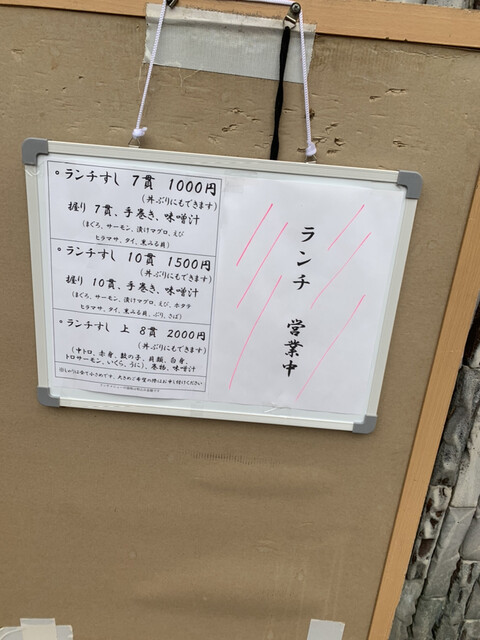 ◦ ランチすし 7貫 1000円
(丼ぶりにもできます)
握り 7貫、手巻き、味噌汁
(まぐろ、サーモン、漬けマグロ、えび
ヒラマサ、タイ、黒みる貝)
◦ ランチすし 10貫 1500円
(丼ぶりにもできます)
握り 10貫、手巻き、味噌汁
(まぐろ、サーモン、漬けマグロ、えび、ホタテ
ヒラマサ、タイ、黒みる貝、ぶり、さば)
◦ ランチすし 上 8貫 2000円
(丼ぶりにもできます)
(中トロ、赤身、数の子、貝類、白身、
トロサーモン、いくら、うに)、巻物、味噌汁
ランチ 営業中